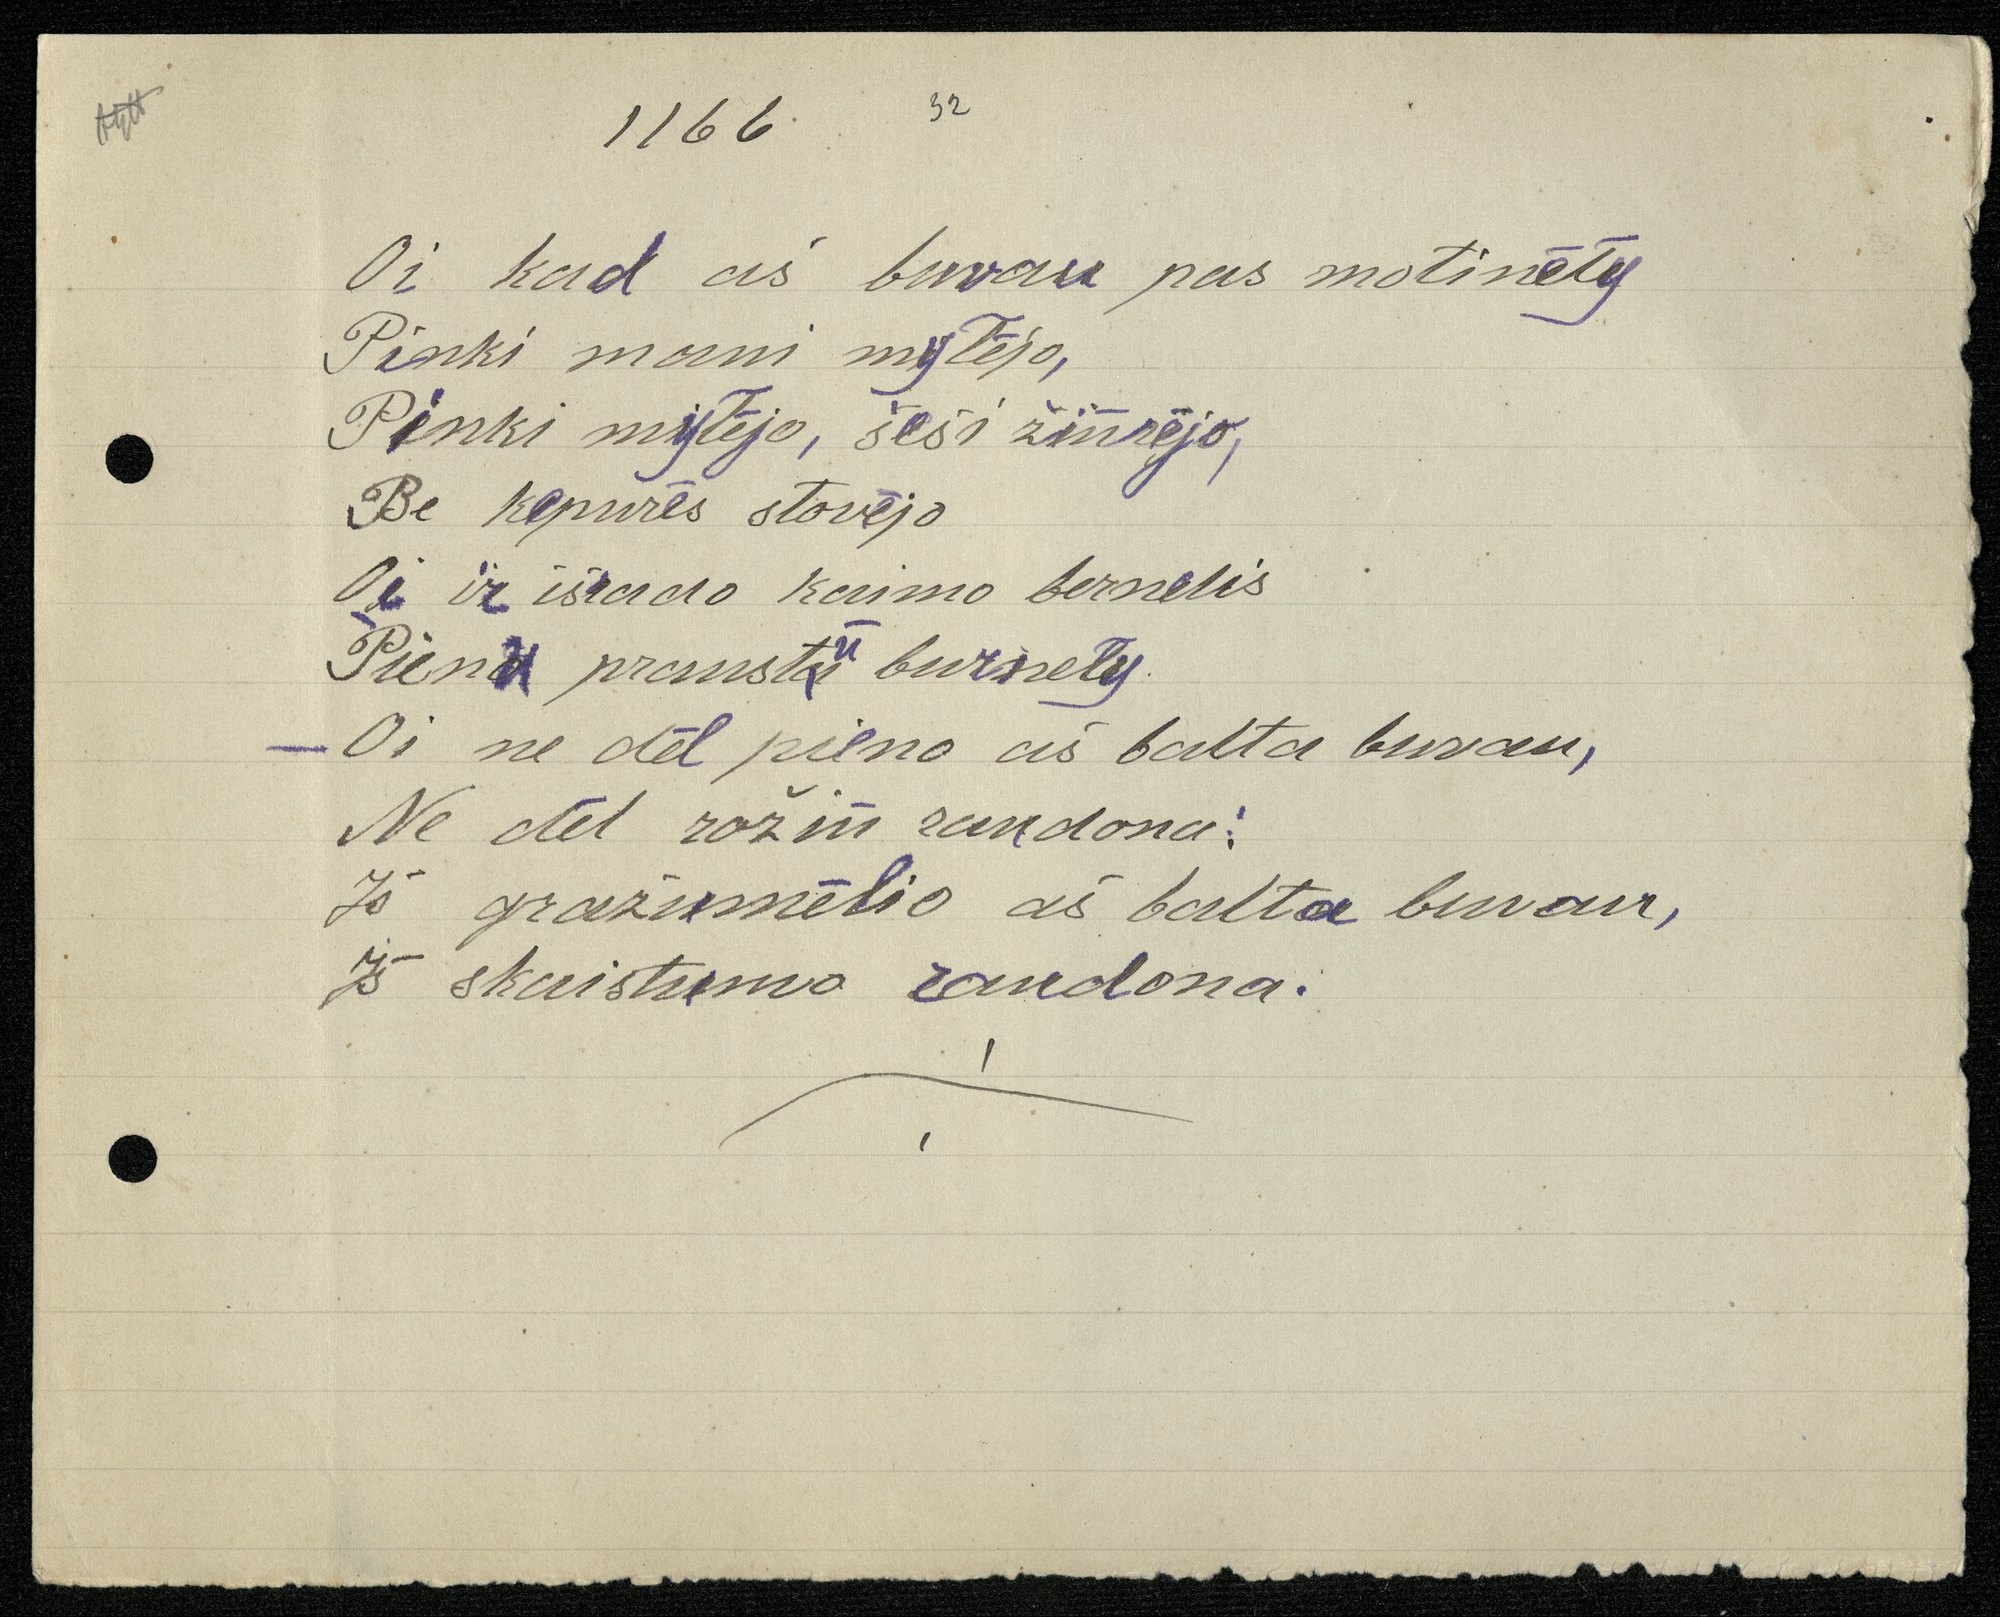 1166 32
Oi kad aš buvau pas motinėly
Pinki mani mylėjo,
Pinki mylėjo, šeši žiūrėjo,
Be kepurės stovėjo
Oi ir išrado kaimo bernelis
Pienu praustū burnely.
— Oi ne dėl pieno aš balta buvau,
Ne dėl rožiū raudona:
Iš gražumėlio aš balta buvau,
Iš skaistumo raudona.